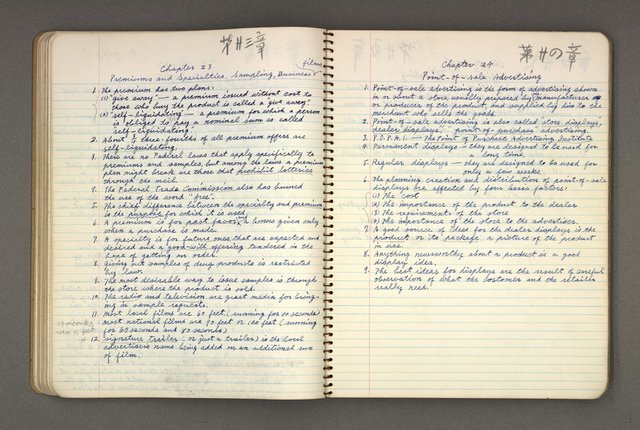 第廿三章
Chapter 23
(films
Premiums and Specialties, Sampling, Business
1. The premium has two plans:
(1) "give away" — a premium issued without cost to
those who buy the product is called a give away.
(2) "self-liquidating" — a premium for which a person
is obliged to pay a nominal sum is called
self-liquidating.
2. About 3/4 three-fourths of all premium offers are
self-liquidating.
3. There are no Federal laws that apply specifically to
premiums and samples, but among the laws a premium
plan might break are those that prohibit lotteries
through the mail.
4. The Federal Trade Commission also has banned
the use of the word "free".
5. The chief difference between the specialty and premium
is the purpose for which it is used.
6. A premium is for past favors, a bonus given only
when a purchase is made.
7. A specialty is for future ones that are expected and
desired and a good-will offering tendered in the
hope of getting an order.
8. Giving out samples of drug products is restricted
by law.
9. The most desirable way to issue samples is through
the store where the product is sold.
10. The radio and television are great media for bring-
ing in sample requests.
11. Most local films are 60 feet (running for 40 seconds)
most national films are 90 feet or 120 feet (running
for 60 seconds and 80 seconds)
10 seconds
run 15 feet
12. Signature trailer (or just a trailer) is the local
advertisers name being added on an additional run
of film.
第廿四章
Chapter 24
Point-of-Sale Advertising
1. Point-of-sale advertising is the form of advertising shown
in or about a store, usually prepared by manufacturer
or producer of the product, and supplied by him to the
merchant who sells the goods.
2. Point-of-sale advertising is also called "store displays",
"dealer displays", "point-of-purchase advertising."
3. P.O.P.A.I. — The Point of Purchase Advertising Institute
4. Permanent displays — they are designed to be used for
a long time.
5. Regular displays — they are designed to be used for
only a few weeks.
6. The planning, creation and distribution of point-of-sale
displays are affected by four basic factors:
(1) The cost
(2) The importance of the product to the dealer
(3) The requirements of the store
(4) The importance of the store to the advertiser.
7. A good source of ideas for the dealer displays is the
product or its package, a picture of the product
in use.
8. Anything newsworthy about a product is a good
display idea.
9. The best ideas for displays are the result of careful
observation of what the customer and the retailer
really need.